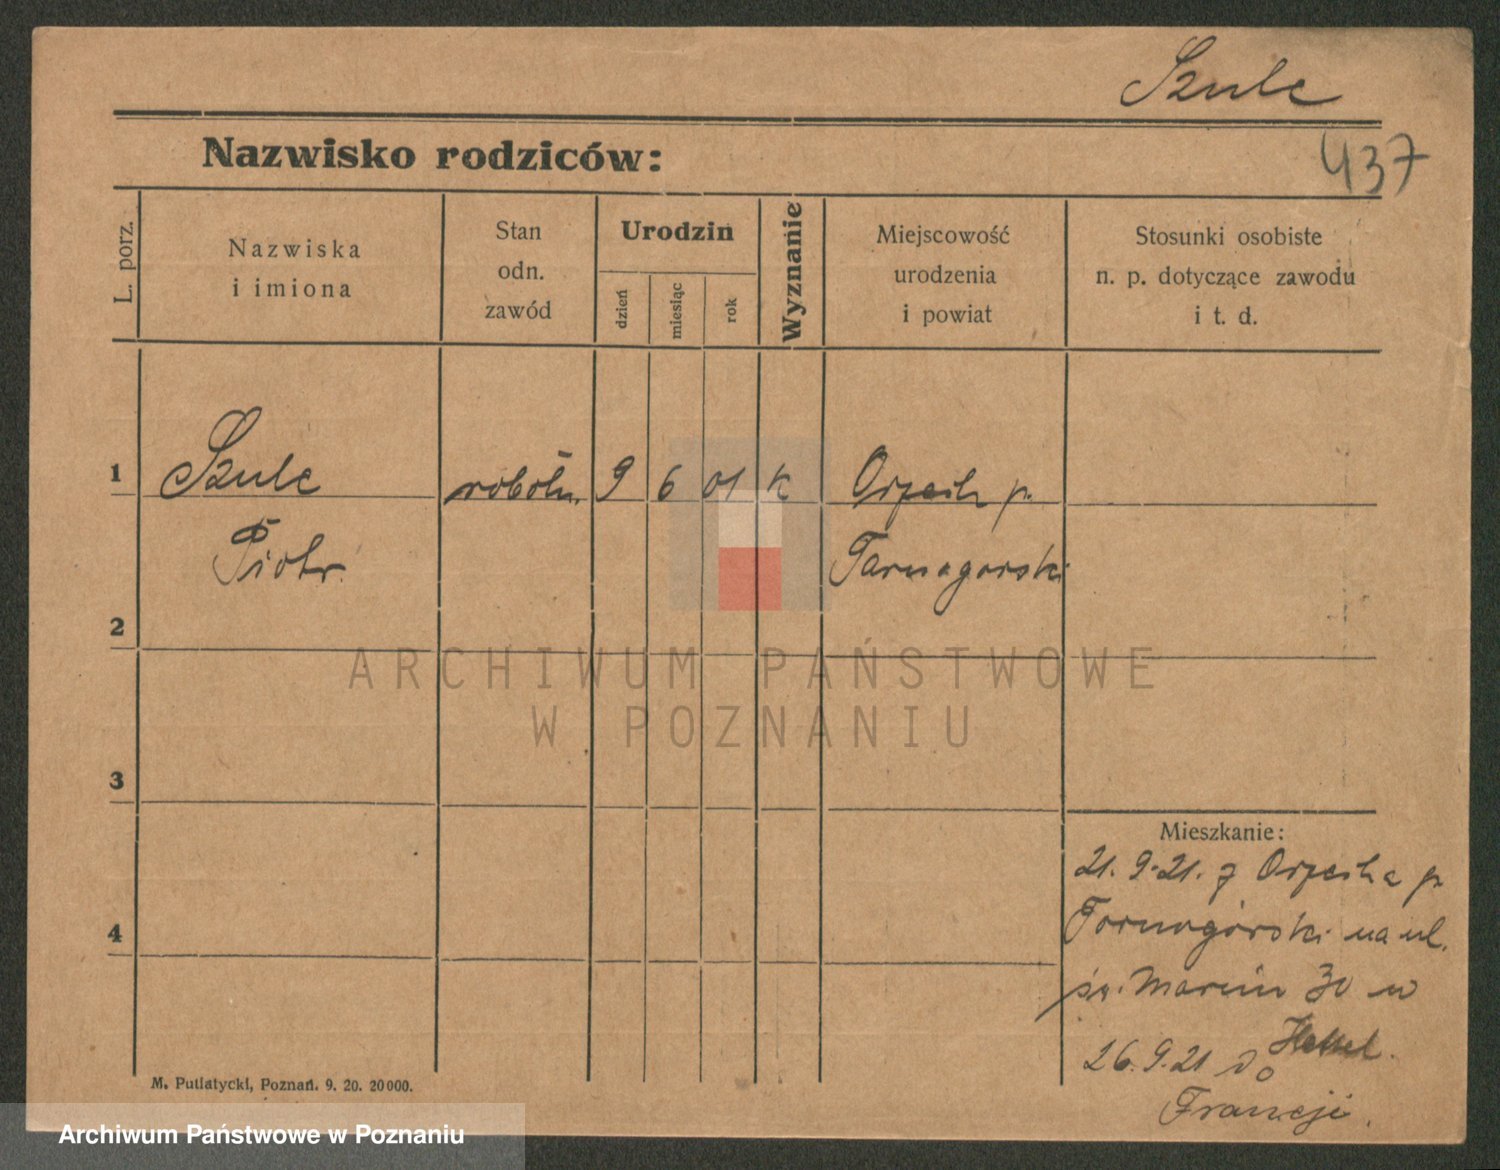 Szulc
437
Nazwisko rodziców:
L. porz.
Nazwiska
i imiona
Stan
odn.
zawód
Urodzin
dzień
miesiąc
rok
Wyznanie
Miejscowość
urodzenia
i powiat
Stosunki osobiste
n. p. dotyczące zawodu
i t. d.
1
Szulc
robotn.
9
6
01
k
Orzech p.
Piotr.
Tarnogorski
2
ARCHIWUM PAŃSTWOWE
W POZNANIU
3
Mieszkanie:
21.9.21. z Orzecha p.
Tarnogórski na ul.
4
św. Marcin 30 u
26.9.21 do
Francji.
M. Putiatycki, Poznań. 9. 20. 20000.
Archiwum Państwowe w Poznaniu